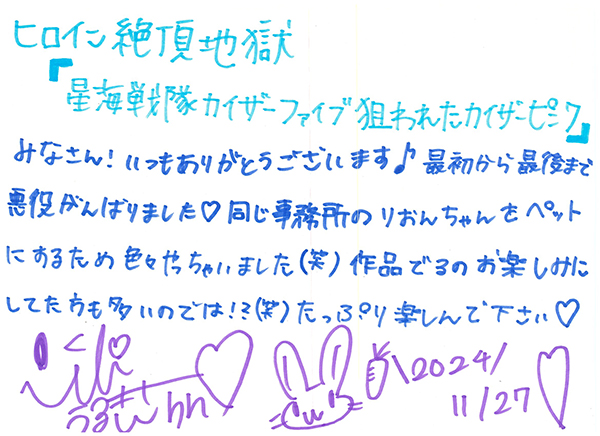 ヒロイン絶頂地獄
『星海戦隊カイザーファイブ狙われたカイザーピンク』
みなさん！いつもありがとうございます♪最初から最後まで
悪役がんばりました♡同じ事務所のりおんちゃんをペット
にするため色々やっちゃいました(笑)作品でるのお楽しみに
してた方も多いのでは!?(笑)たっぷり楽しんで下さい♡
2024/
11/27